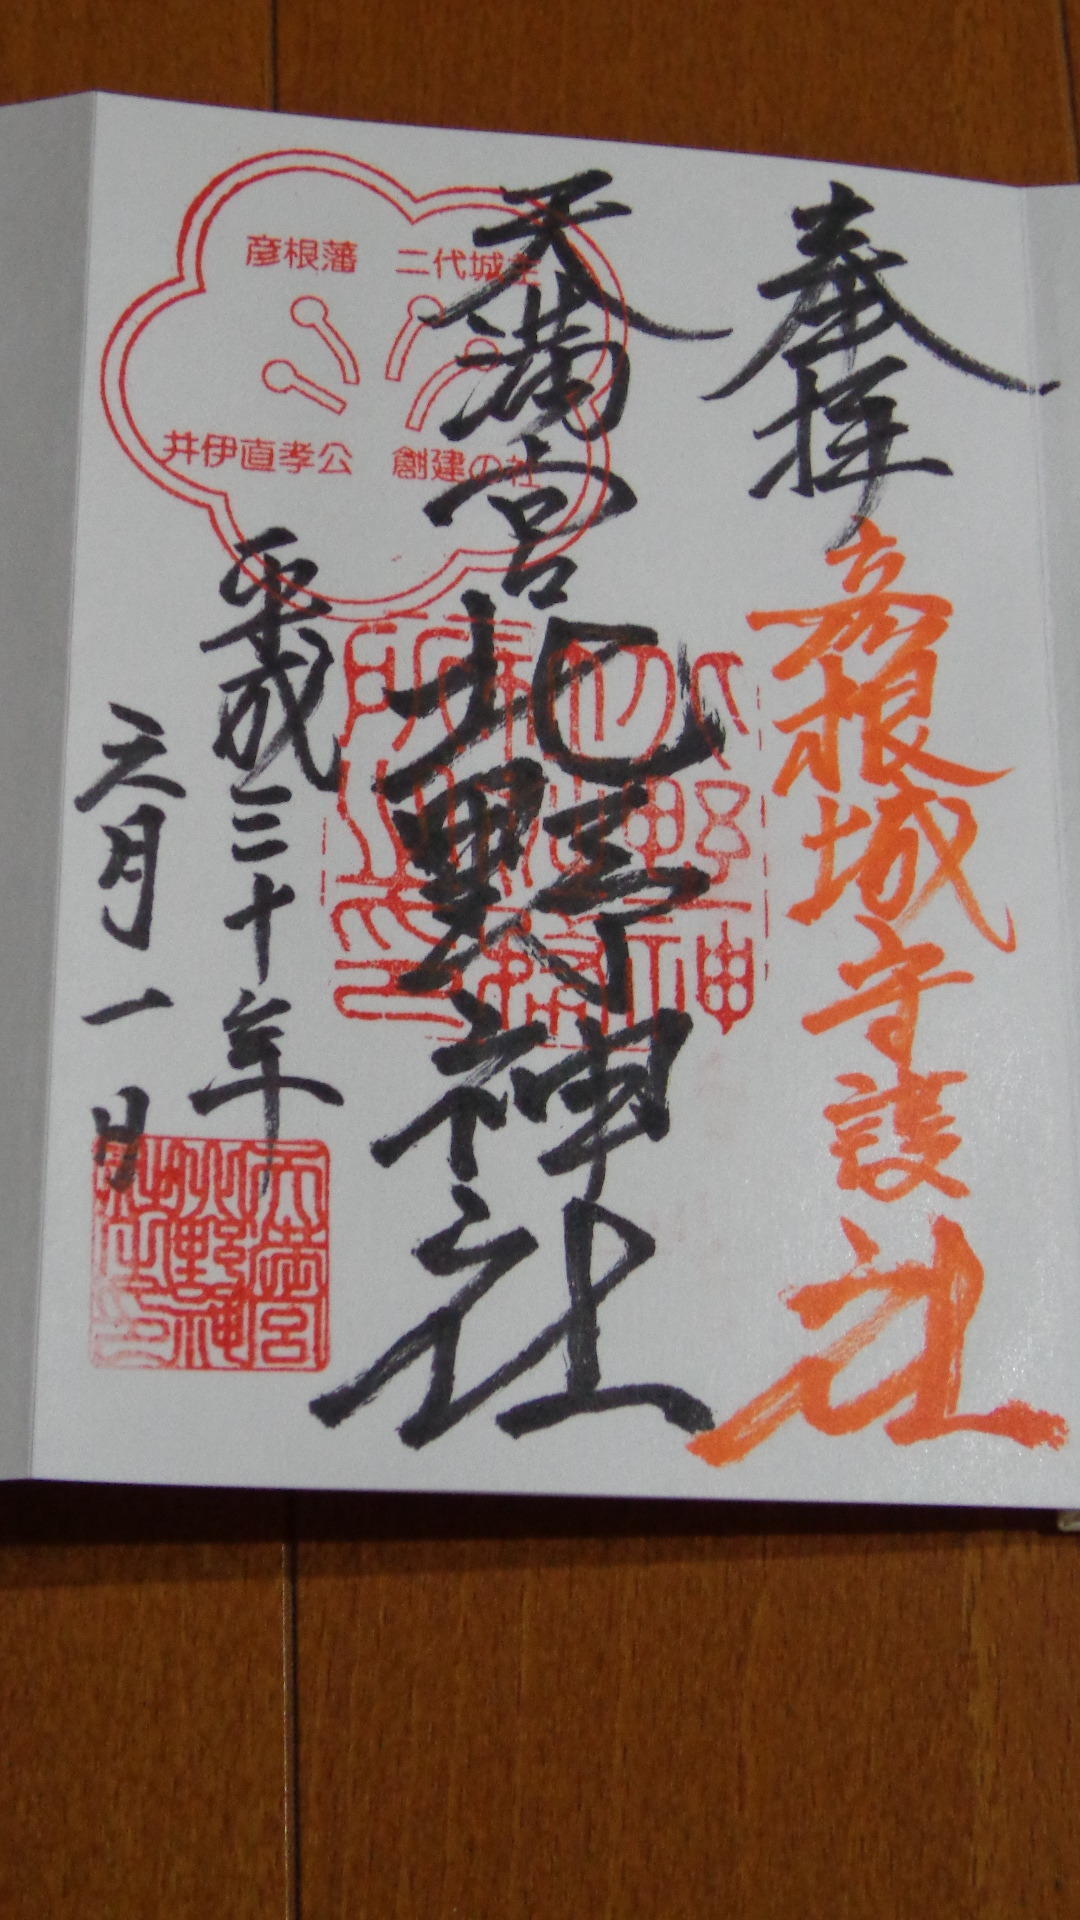 奉拝
彦根城守護社
天満宮
北野神社
平成三十年
六月一日
彦根藩 二代城主
井伊直孝公 創建の社
天満宮
北野神
社之印